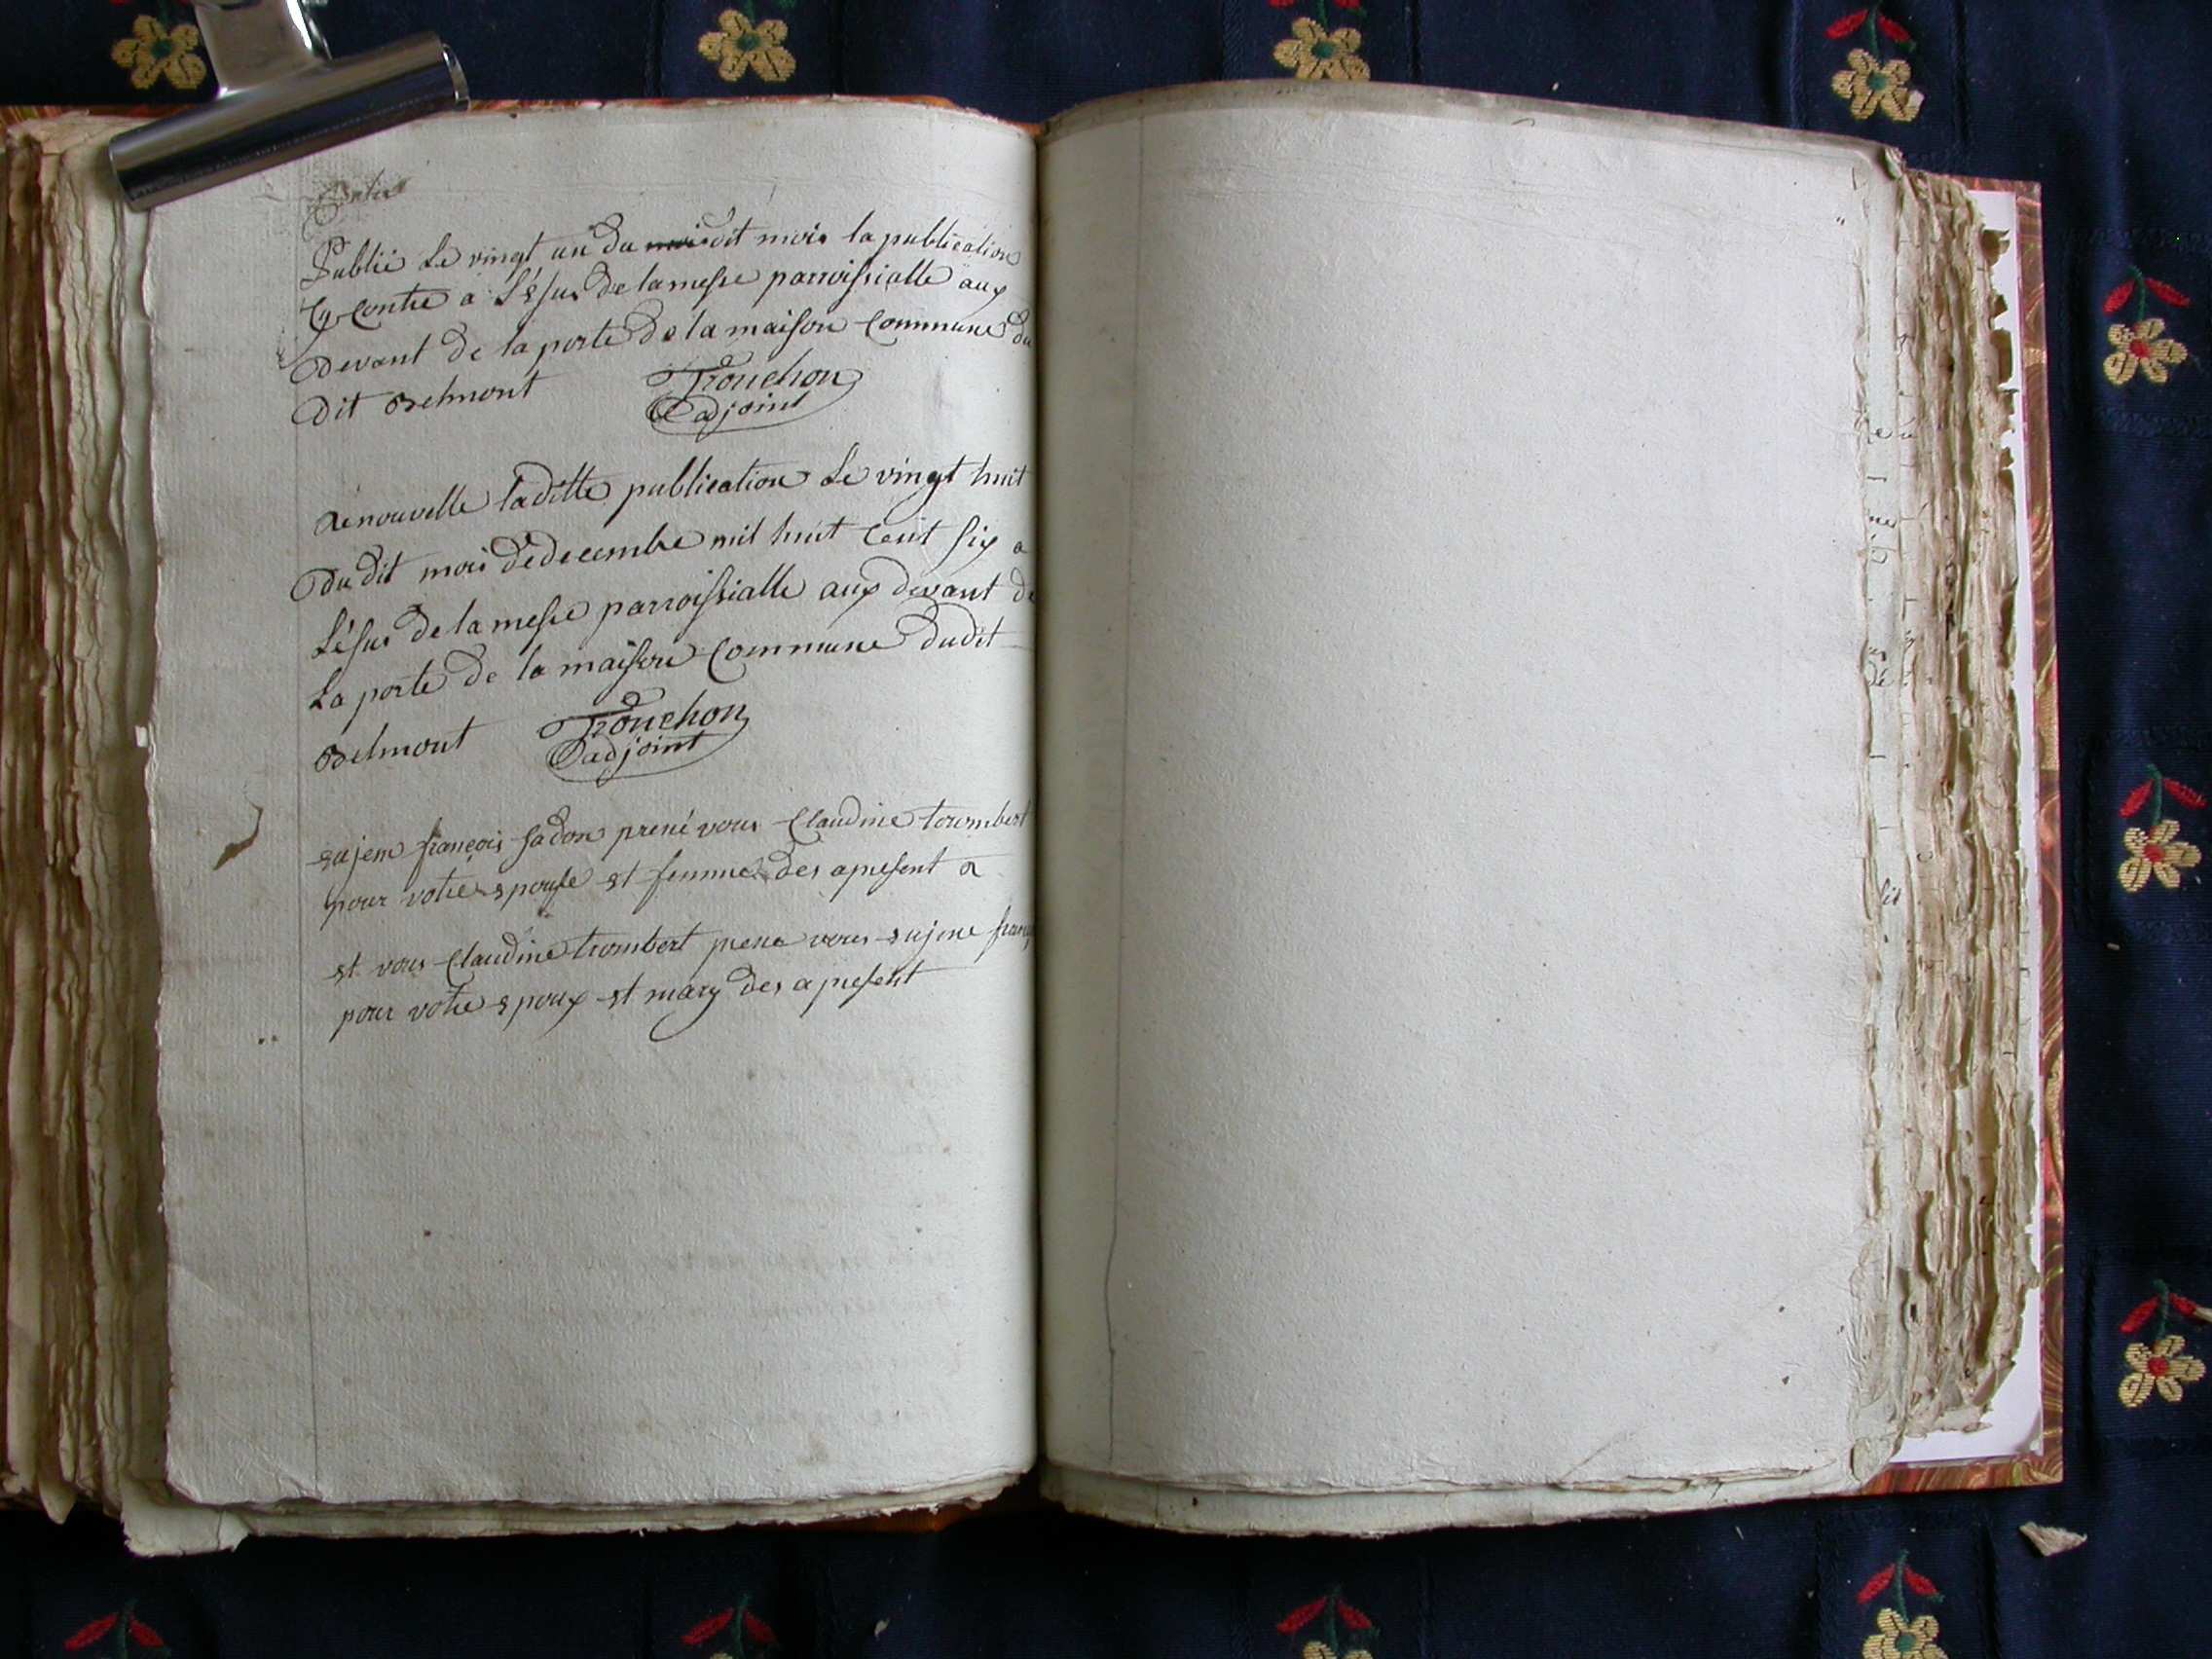 Publié Le vingt un du mois dit mois la publication
Cy Contre a L'ésus de la messe parroissialle aux
Devant de la porte de la maison Commune du
dit Belmont Trouchon
adjoint
Renouvelle laditte publication Le vingt huit
Du dit mois de decembre mil huit Cent six a
L'ésus de la messe parroissialle aux devant de
La porte de la maison Commune dudit
Belmont Trouchon
adjoint
eujene françois fadon prené vous Claudine tourmbert
pour votre epouse et femme des apresent a
et vous Claudine trombert prene vous eujene
pour votre epoux et mary des apresent